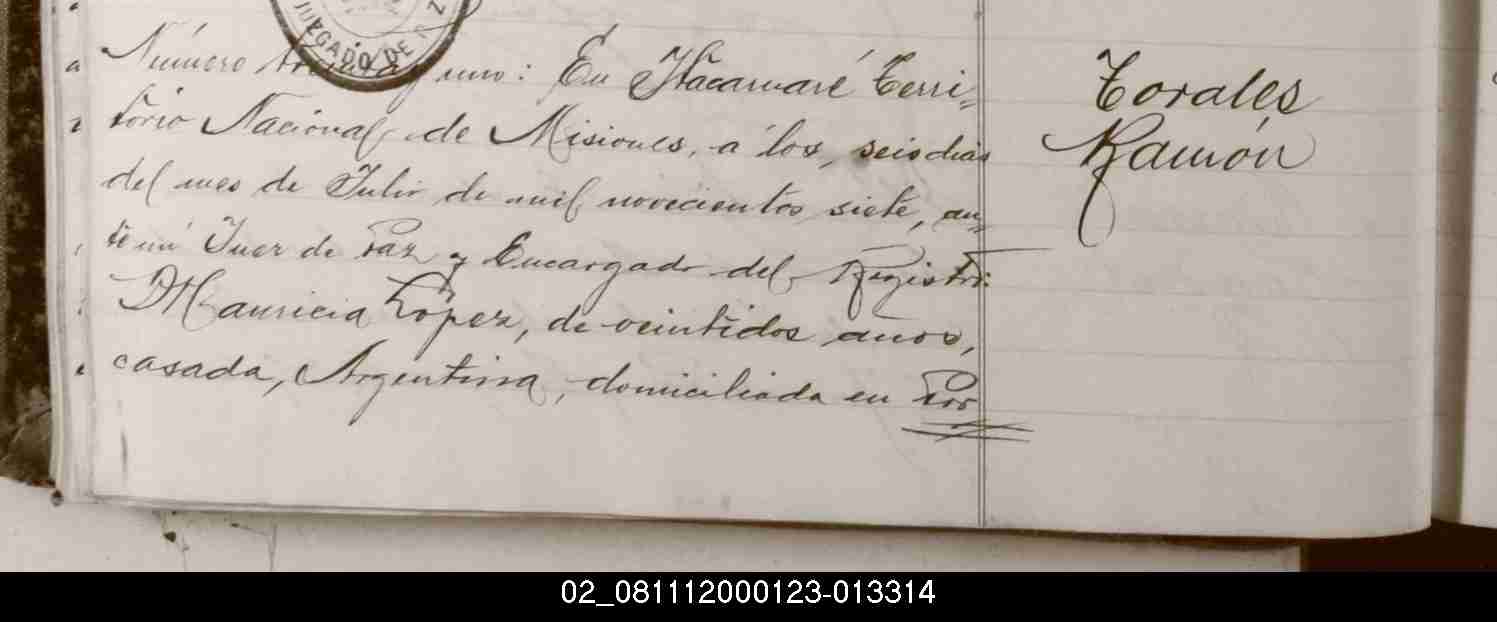 JUZGADO DE
Número treinta y uno: En Itacaruaré Terri-
torio Nacional de Misiones, a los, seis dias
del mes de Julio de mil novecientos siete, an-
te mi Juez de Paz y Encargado del Registro:
Mauricia López, de veintidos anos,
casada, Argentina, domiciliada en
Torales
Ramón
02_081112000123-013314